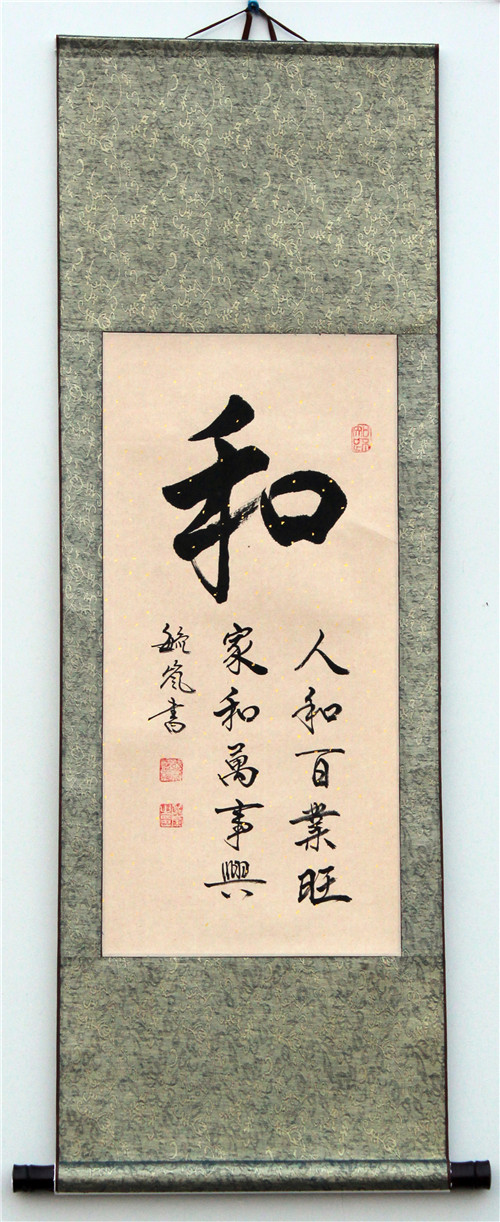 和
人和百業旺
家和萬事興
毓嵐書